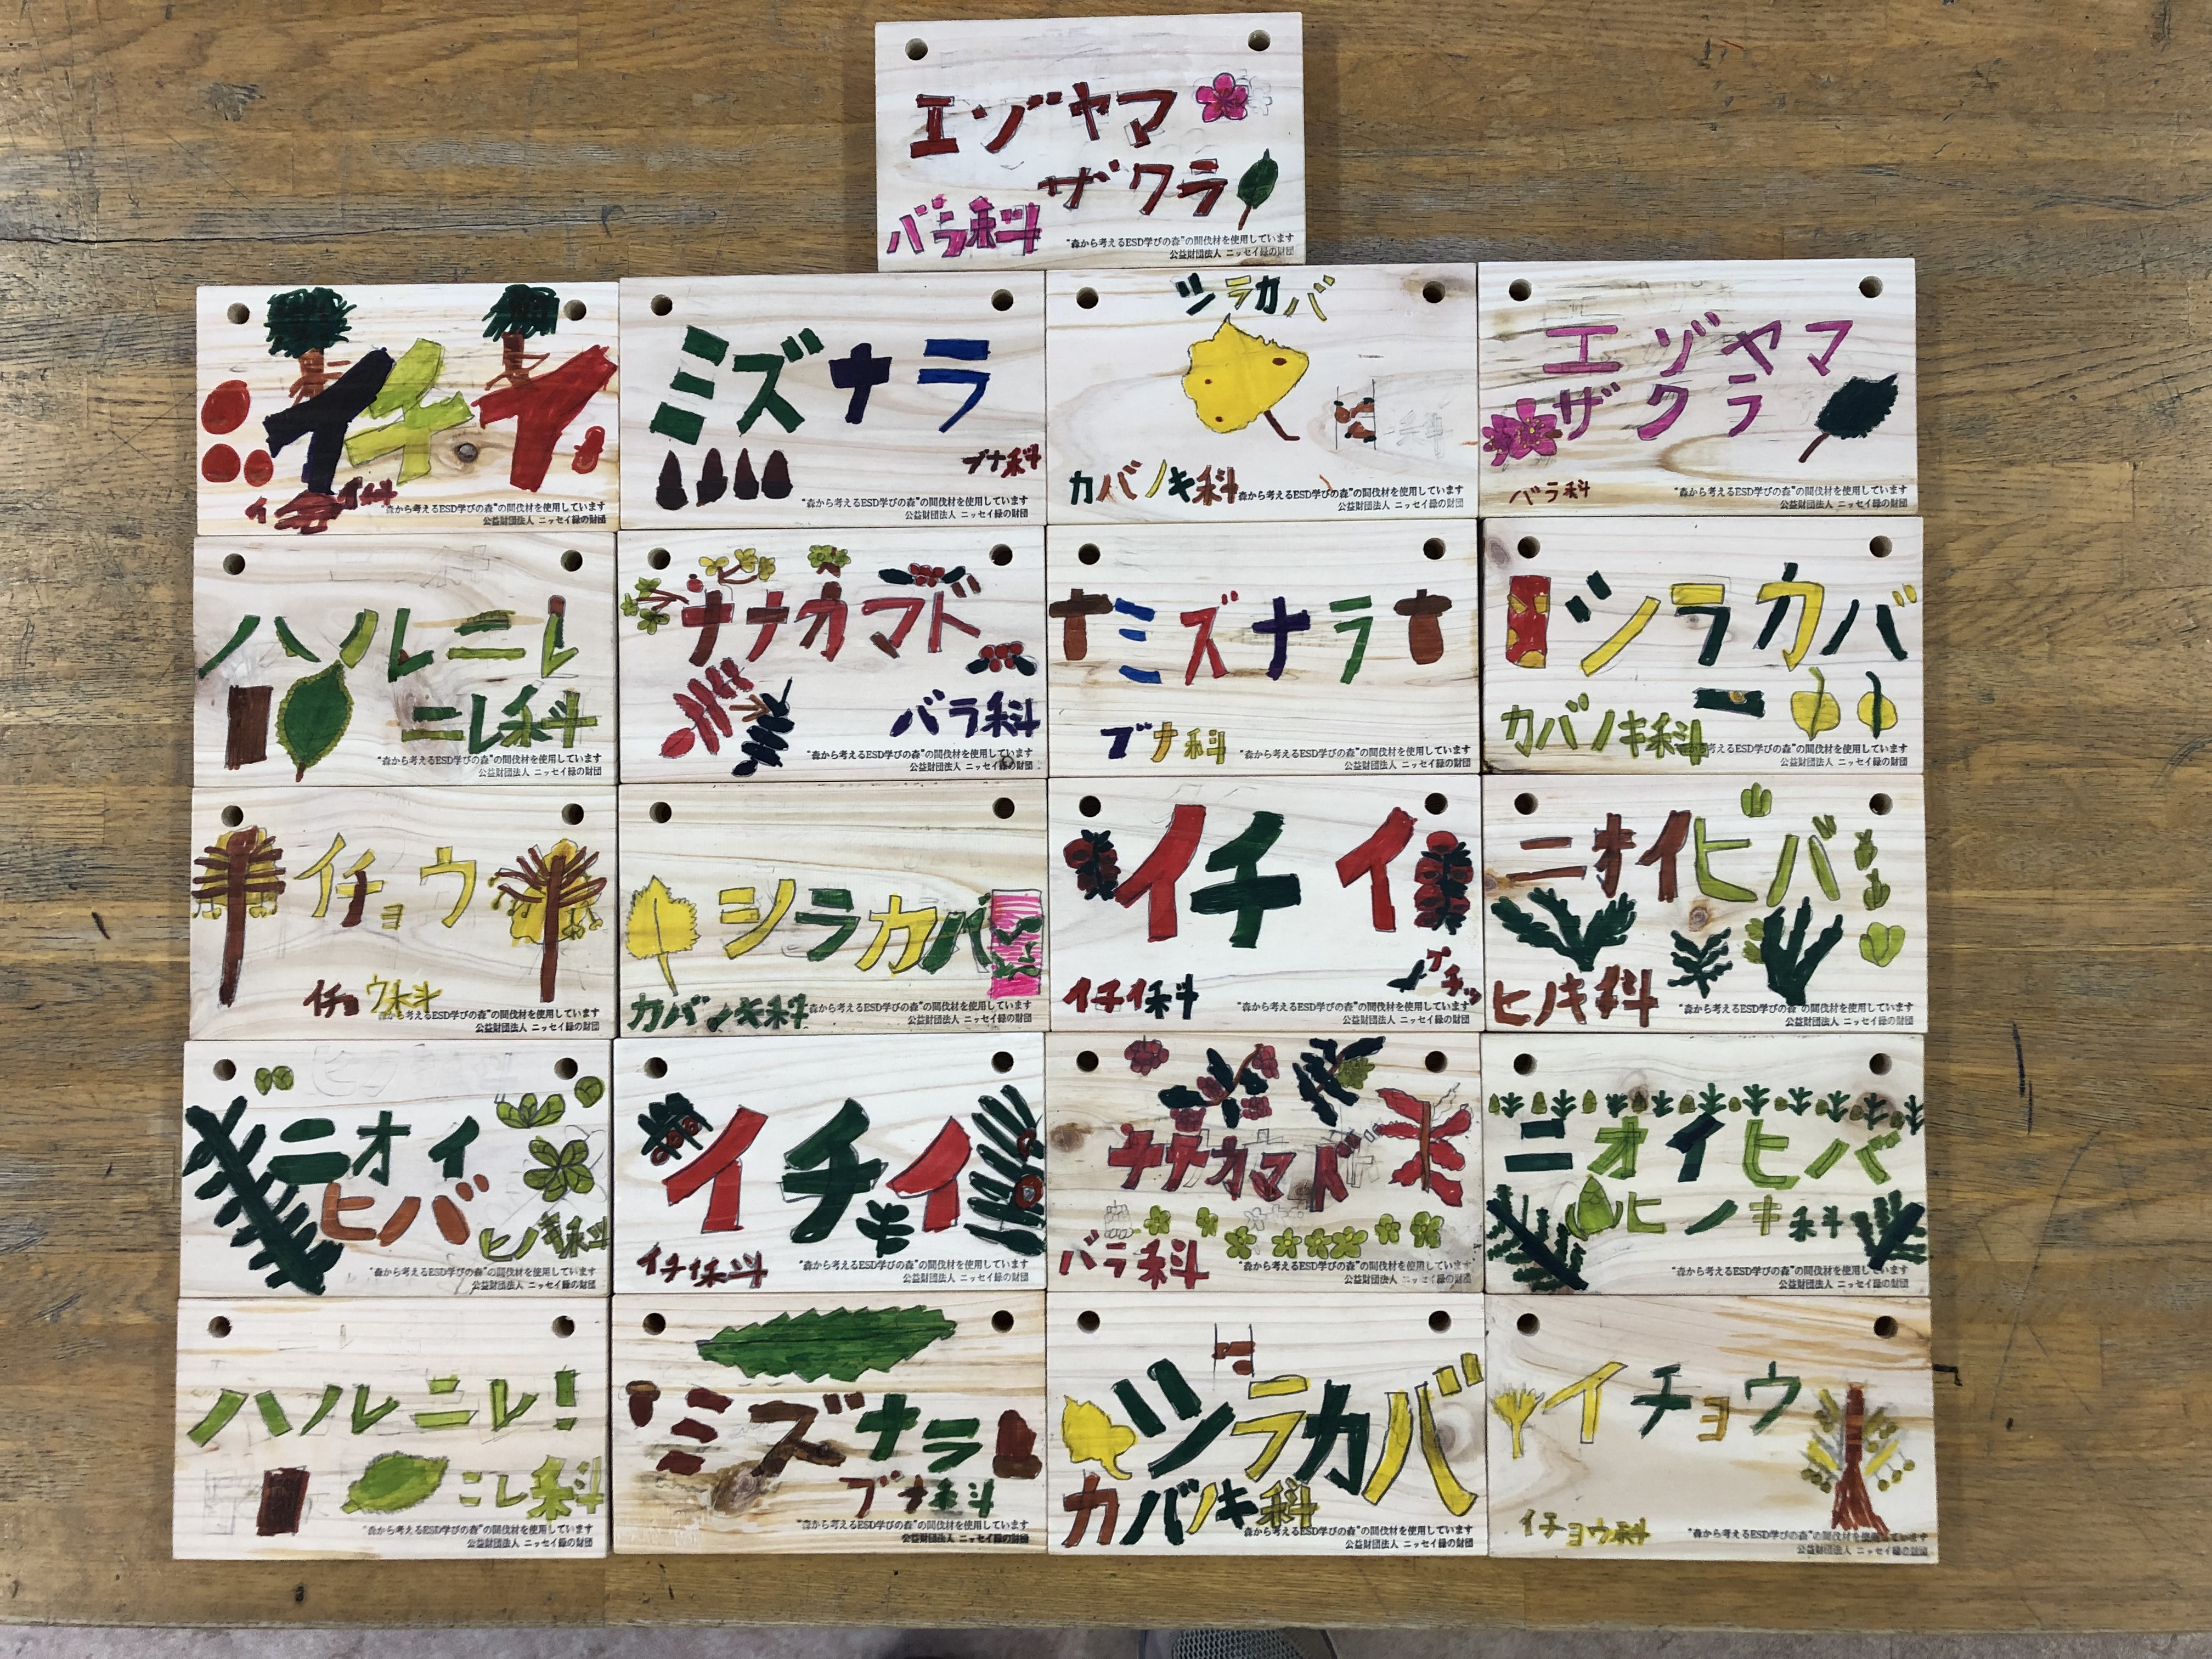 エゾヤマ
ザクラ
バラ科
"森から考えるESD学びの森"の間伐材を使用しています
公益財団法人 ニッセイ緑の財団
イチイ
イチイ科
"森から考えるESD学びの森"の間伐材を使用しています
公益財団法人 ニッセイ緑の財団
ミズナラ
ブナ科
"森から考えるESD学びの森"の間伐材を使用しています
公益財団法人 ニッセイ緑の財団
シラカバ
カバノキ科
"森から考えるESD学びの森"の間伐材を使用しています
公益財団法人 ニッセイ緑の財団
エゾヤマ
ザクラ
バラ科
"森から考えるESD学びの森"の間伐材を使用しています
公益財団法人 ニッセイ緑の財団
ハルニレ
ニレ科
"森から考えるESD学びの森"の間伐材を使用しています
公益財団法人 ニッセイ緑の財団
ナナカマド
バラ科
"森から考えるESD学びの森"の間伐材を使用しています
公益財団法人 ニッセイ緑の財団
ミズナラ
ブナ科
"森から考えるESD学びの森"の間伐材を使用しています
公益財団法人 ニッセイ緑の財団
シラカバ
カバノキ科
"森から考えるESD学びの森"の間伐材を使用しています
公益財団法人 ニッセイ緑の財団
イチョウ
イチョウ科
"森から考えるESD学びの森"の間伐材を使用しています
公益財団法人 ニッセイ緑の財団
シラカバ
カバノキ科
"森から考えるESD学びの森"の間伐材を使用しています
公益財団法人 ニッセイ緑の財団
イチイ
イチイ科
"森から考えるESD学びの森"の間伐材を使用しています
公益財団法人 ニッセイ緑の財団
ニオイヒバ
ヒノキ科
"森から考えるESD学びの森"の間伐材を使用しています
公益財団法人 ニッセイ緑の財団
ニオイ
ヒバ
ヒノキ科
"森から考えるESD学びの森"の間伐材を使用しています
公益財団法人 ニッセイ緑の財団
イチイ
イチイ科
"森から考えるESD学びの森"の間伐材を使用しています
公益財団法人 ニッセイ緑の財団
ナナカマド
バラ科
"森から考えるESD学びの森"の間伐材を使用しています
公益財団法人 ニッセイ緑の財団
ニオイヒバ
ヒノキ科
"森から考えるESD学びの森"の間伐材を使用しています
公益財団法人 ニッセイ緑の財団
ハルニレ!
ニレ科
"森から考えるESD学びの森"の間伐材を使用しています
公益財団法人 ニッセイ緑の財団
ミズナラ
ブナ科
"森から考えるESD学びの森"の間伐材を使用しています
公益財団法人 ニッセイ緑の財団
シラカバ
カバノキ科
"森から考えるESD学びの森"の間伐材を使用しています
公益財団法人 ニッセイ緑の財団
イチョウ
イチョウ科
"森から考えるESD学びの森"の間伐材を使用しています
公益財団法人 ニッセイ緑の財団